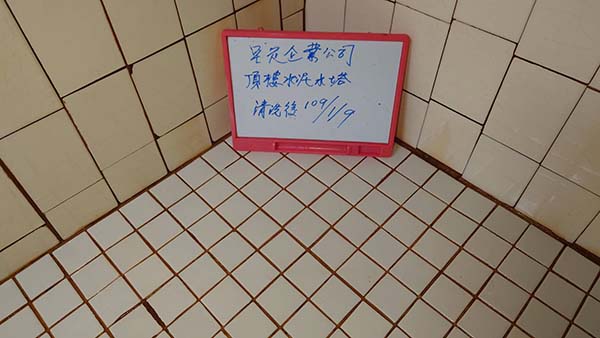 星定企業公司
頂樓水泥水塔
清洗後 109/1/9